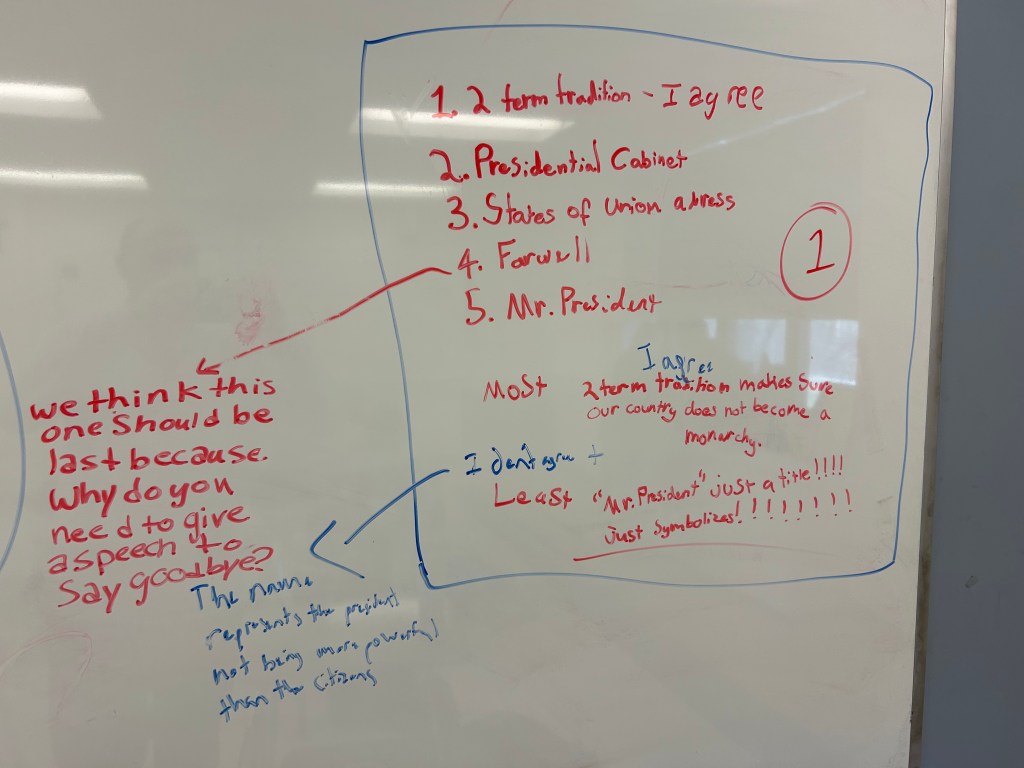 1. 2 term tradition - I agree
2. Presidential Cabinet
3. States of Union adress
4. Farwell
5. Mr. President
1
I agree
Most 2 term tradition makes sure
our country does not become a
monarchy.
I dont agree +
Least "Mr. President" just a title!!!!
just symbolizes!!!!!!!!
we think this
one should be
last because.
Why do you
need to give
a speech to
Say goodbye?
The name
represents the president
not being more powerful
than the citizens